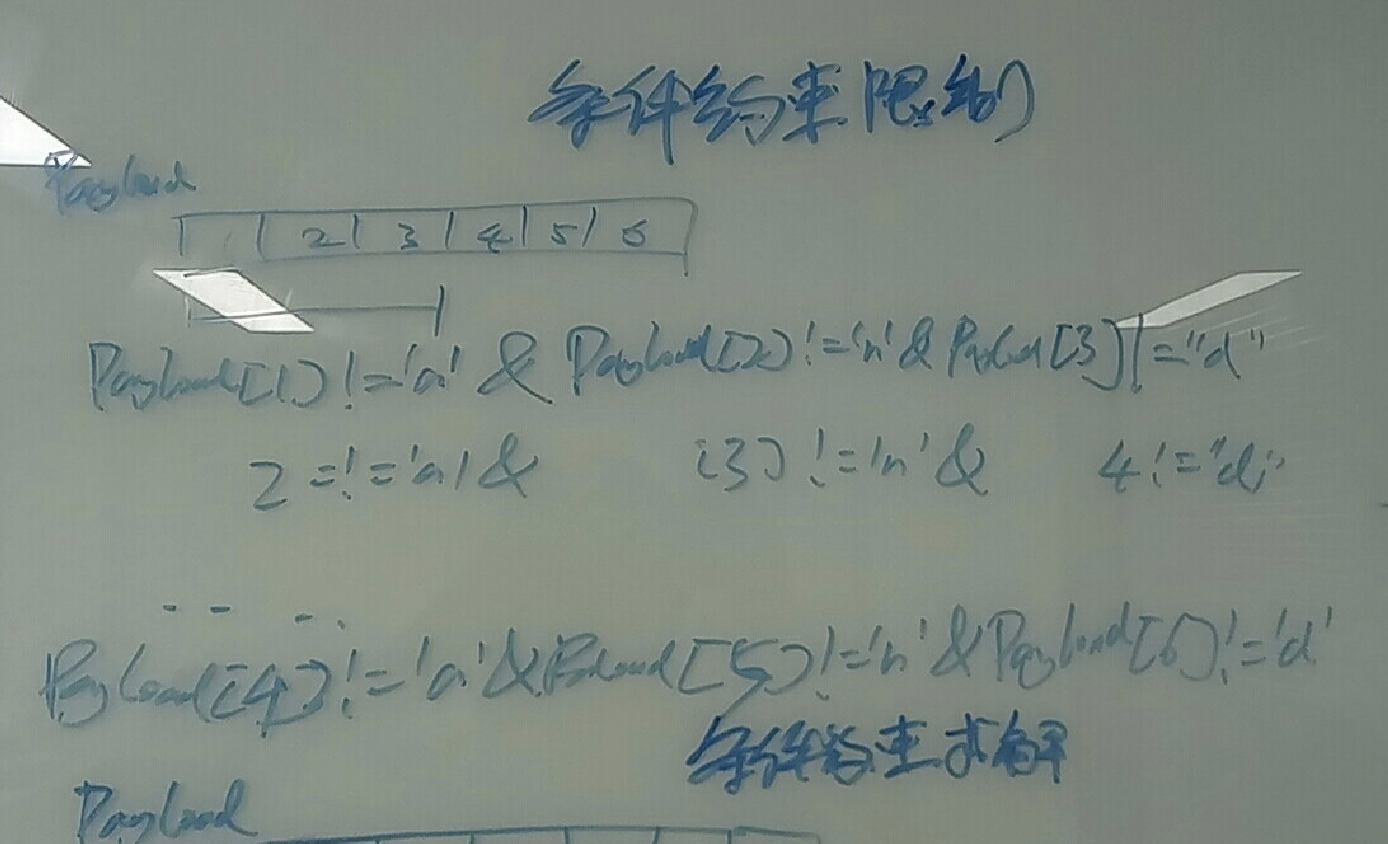 条件约束限制
Payload
2 3 4 5 6
Payload[1]!='a' & Payload[2]!='n' & Payload[3]!="d"
2 =!='a' & [3]!='n' & 4!="d"
Payload[4]!='a' & Payload[5]!='n' & Payload[6]!='d'
条件约束求解
Payload